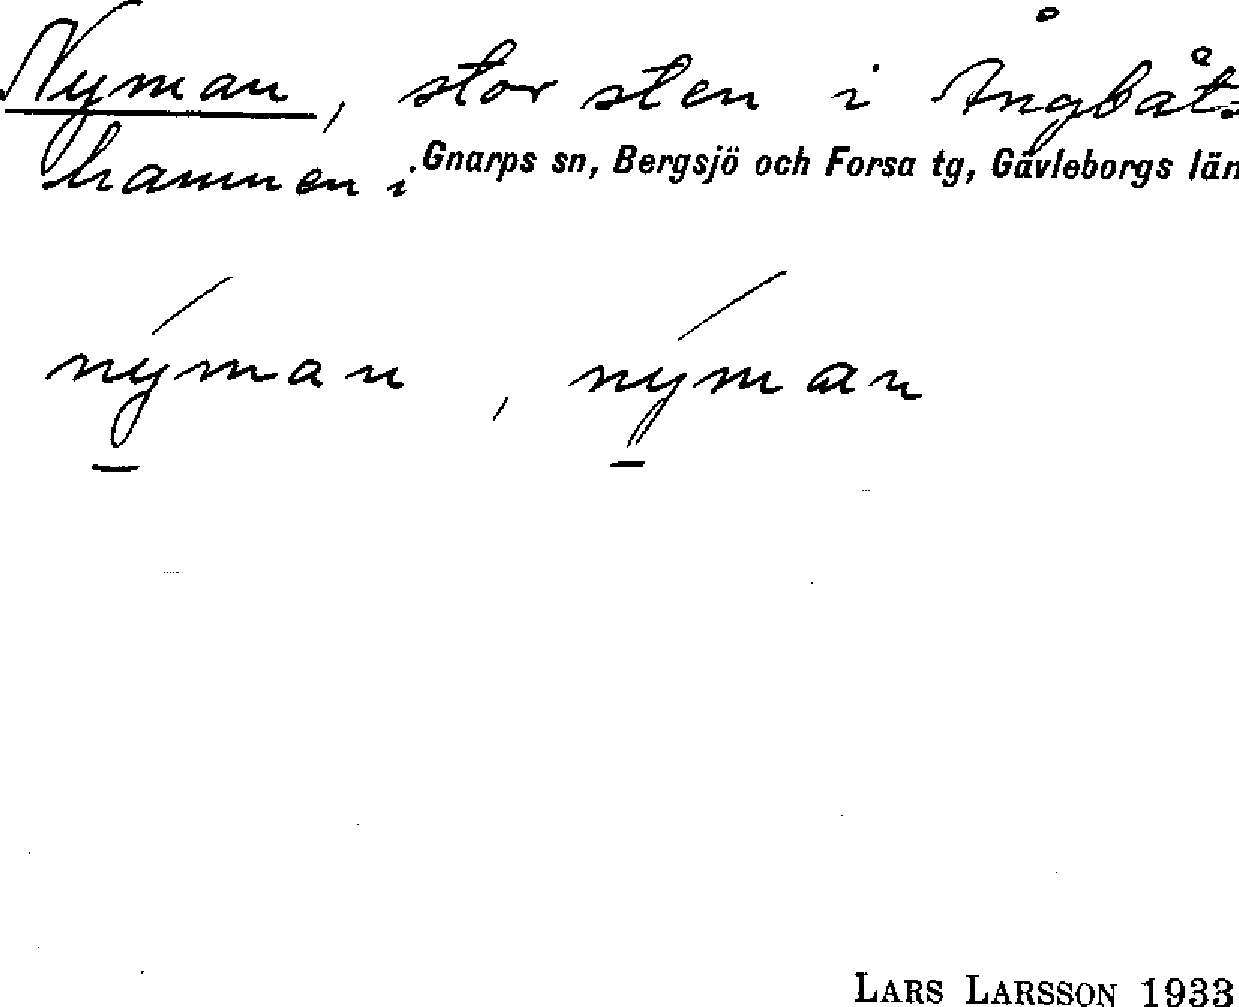 Nyman, stor sten i Ångbåts-
hamnen i Gnarps sn, Bergsjö och Forsa tg, Gävleborgs län
nýman, nýman
LARS LARSSON 1933